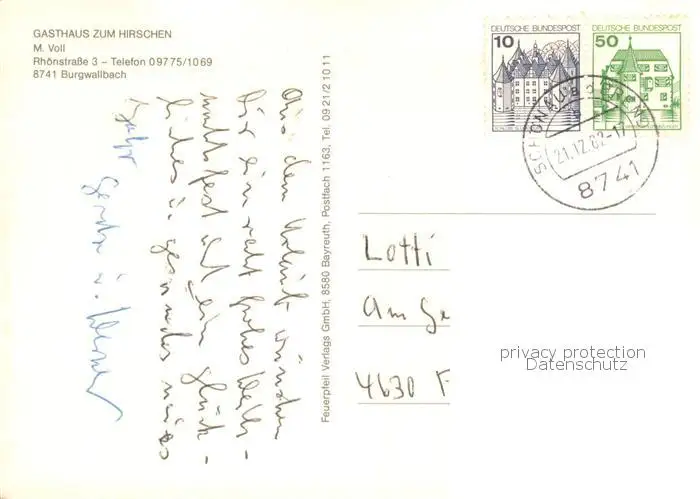 GASTHAUS ZUM HIRSCHEN
M. Voll
Rhönstraße 3 – Telefon 09775/1069
8741 Burgwallbach
Aus dem Urlaub wünschen
Dir ein recht frohes Weih-
nachtsfest und ein glück-
liches u. gesundes neues
Jahr
Gerda u. Werner
Feuerpfeil Verlags GmbH, 8580 Bayreuth, Postfach 1163, Tel. 0921/21011
10
DEUTSCHE BUNDESPOST
50
DEUTSCHE BUNDESPOST
SCHÖNAU
21.12.82-17
8741
Lotti
Am Ge
4630
privacy protection
Datenschutz